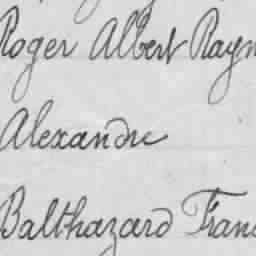 Roger Albert Raym
Alexandre
Balthazard Fran